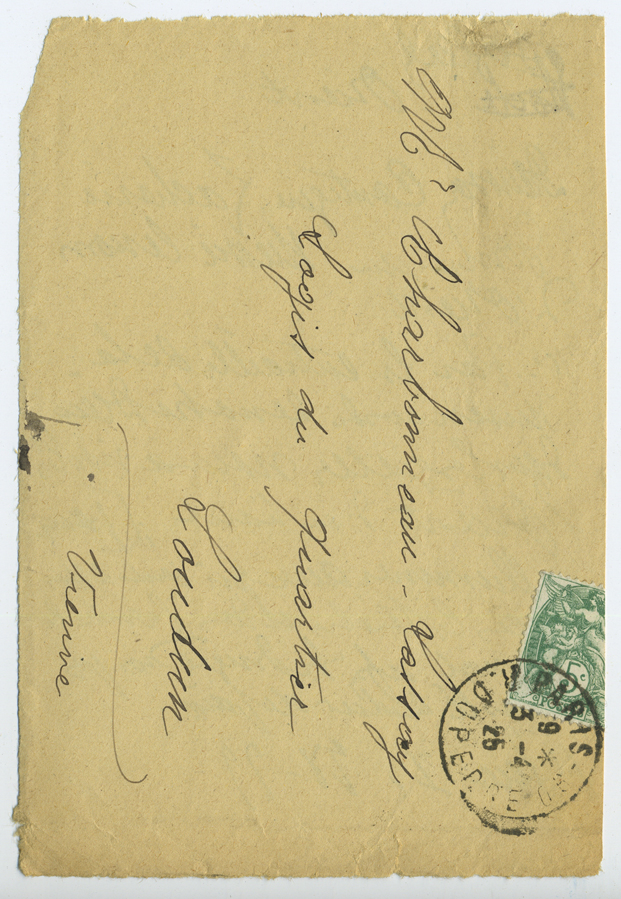 Mr Charbonneau-Lassay
Logis du Quartier
Loudun
Vienne
5c
PARIS
3 -4
25